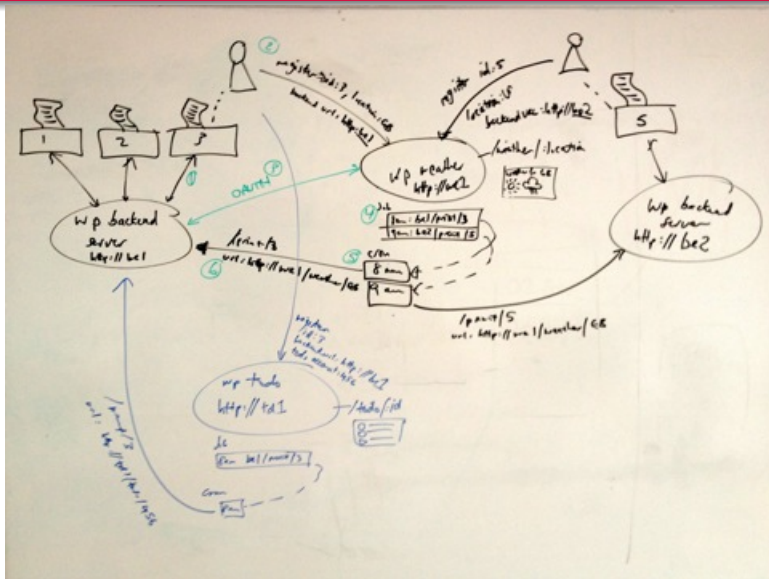 2
register id:3, location:GB
backend url: http:be1
register id:5
location:GB
backend url: http://be2
1
2
3
5
OAUTH
wp weather
http://we1
/weather/:location
wp backend
server
http://be1
wp backend
server
http://be2
4
db
8am: be1/print/3
9am: be2/print/5
5
cron
8am
9am
/print/3
url: http://we1/weather/GB
6
/print/5
url: http://we1/weather/GB
register
/id:3
backend url: http://be1
wp todo
http://td1
/todo/:id
db
8am be1/print/3
cron
8am
/print/3
url: http://td1/todo/456